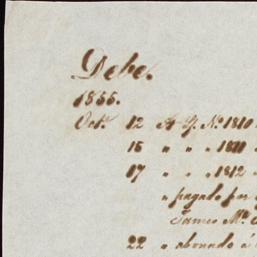 Debe.
1855.
Oct. 12 A G. No. 1810
15 " " " 1811
17 " " " 1812 "
" pagado por
James Mc.
22 " abonado á